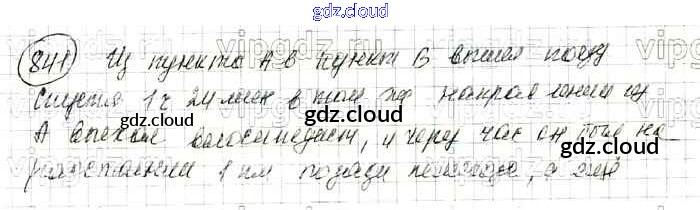 gdz.cloud
841 Из пункта А в пункт В вышел
Спустя 1 ч 24 мин в том же направлении из
А выехал велосипедист, и через час он был на
расстоянии 1 км позади пешехода, а ещё
gdz.cloud
gdz.cloud
gdz.cloud
gdz.cloud